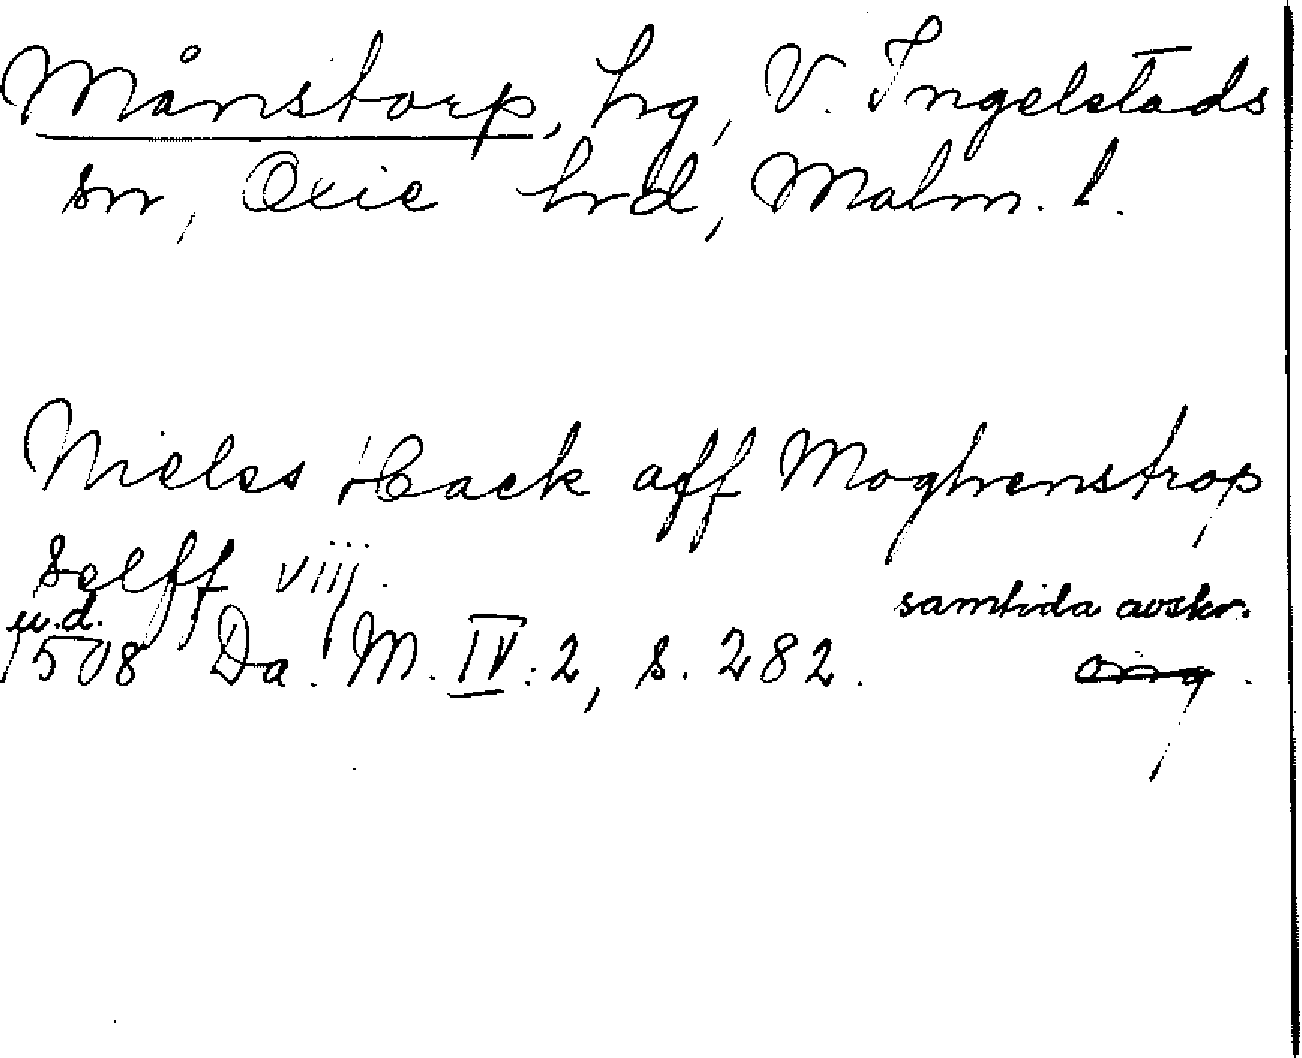 Månstorp, hg, V. Ingelstads
sn, Oxie hrd, Malm. l.
Nielss Hack aff Moghenstrop
selff viij.
u.d. samtida avskr.
1508 Da. M. IV:2, s. 282. orig.